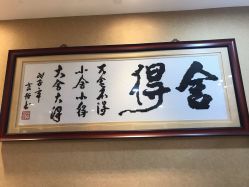 舍得
不舍不得
小舍小得
大舍大得